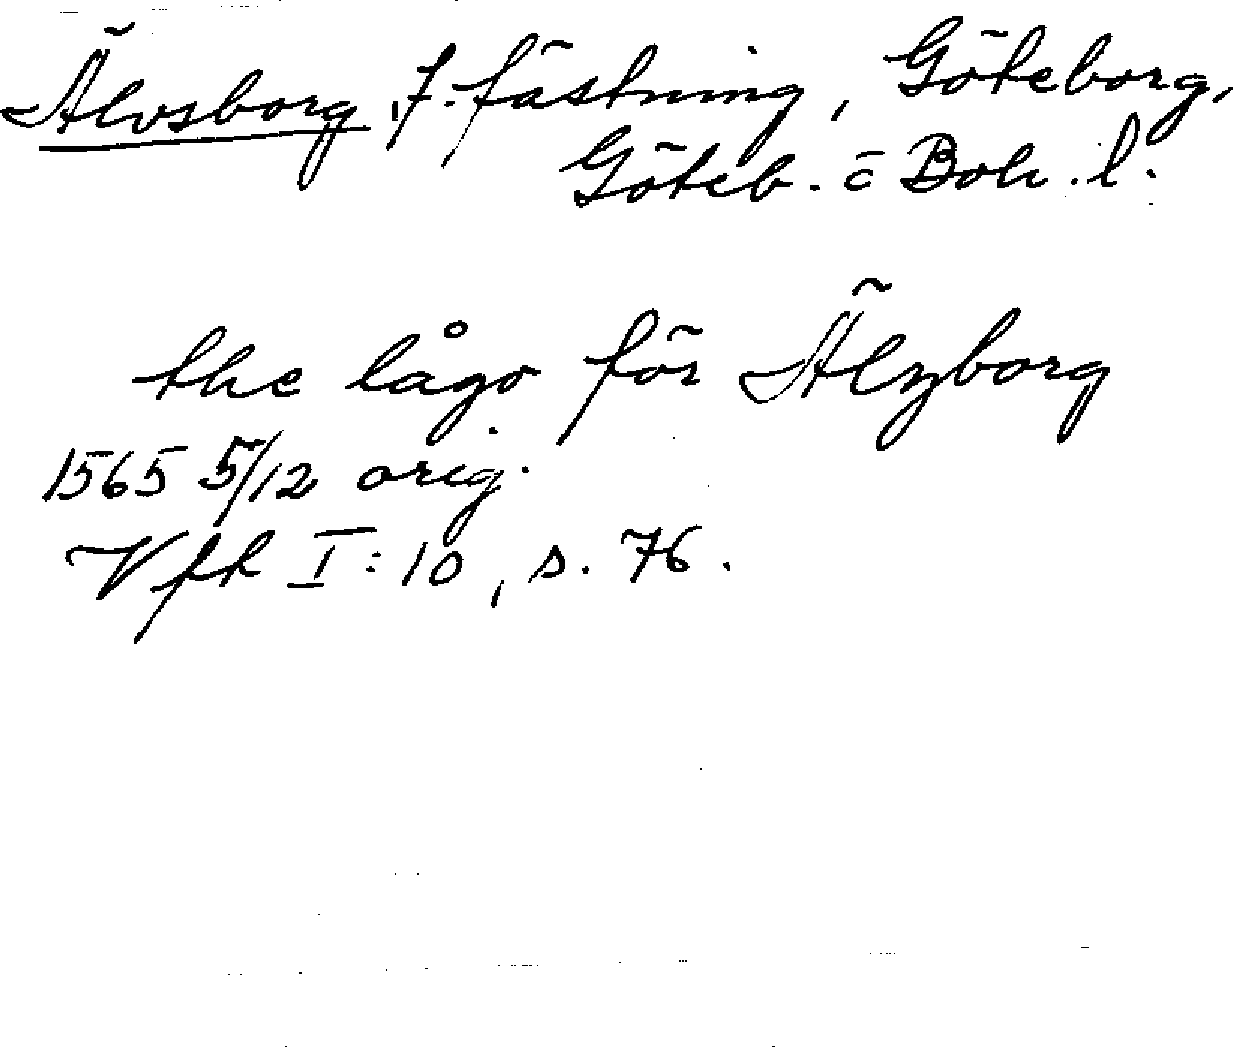 Älvsborg, f. fästning, Göteborg,
Göteb. o Boh. l.
the lågo för Älzborg
1565 5/12 orig.
Vfk I:10, s. 76.